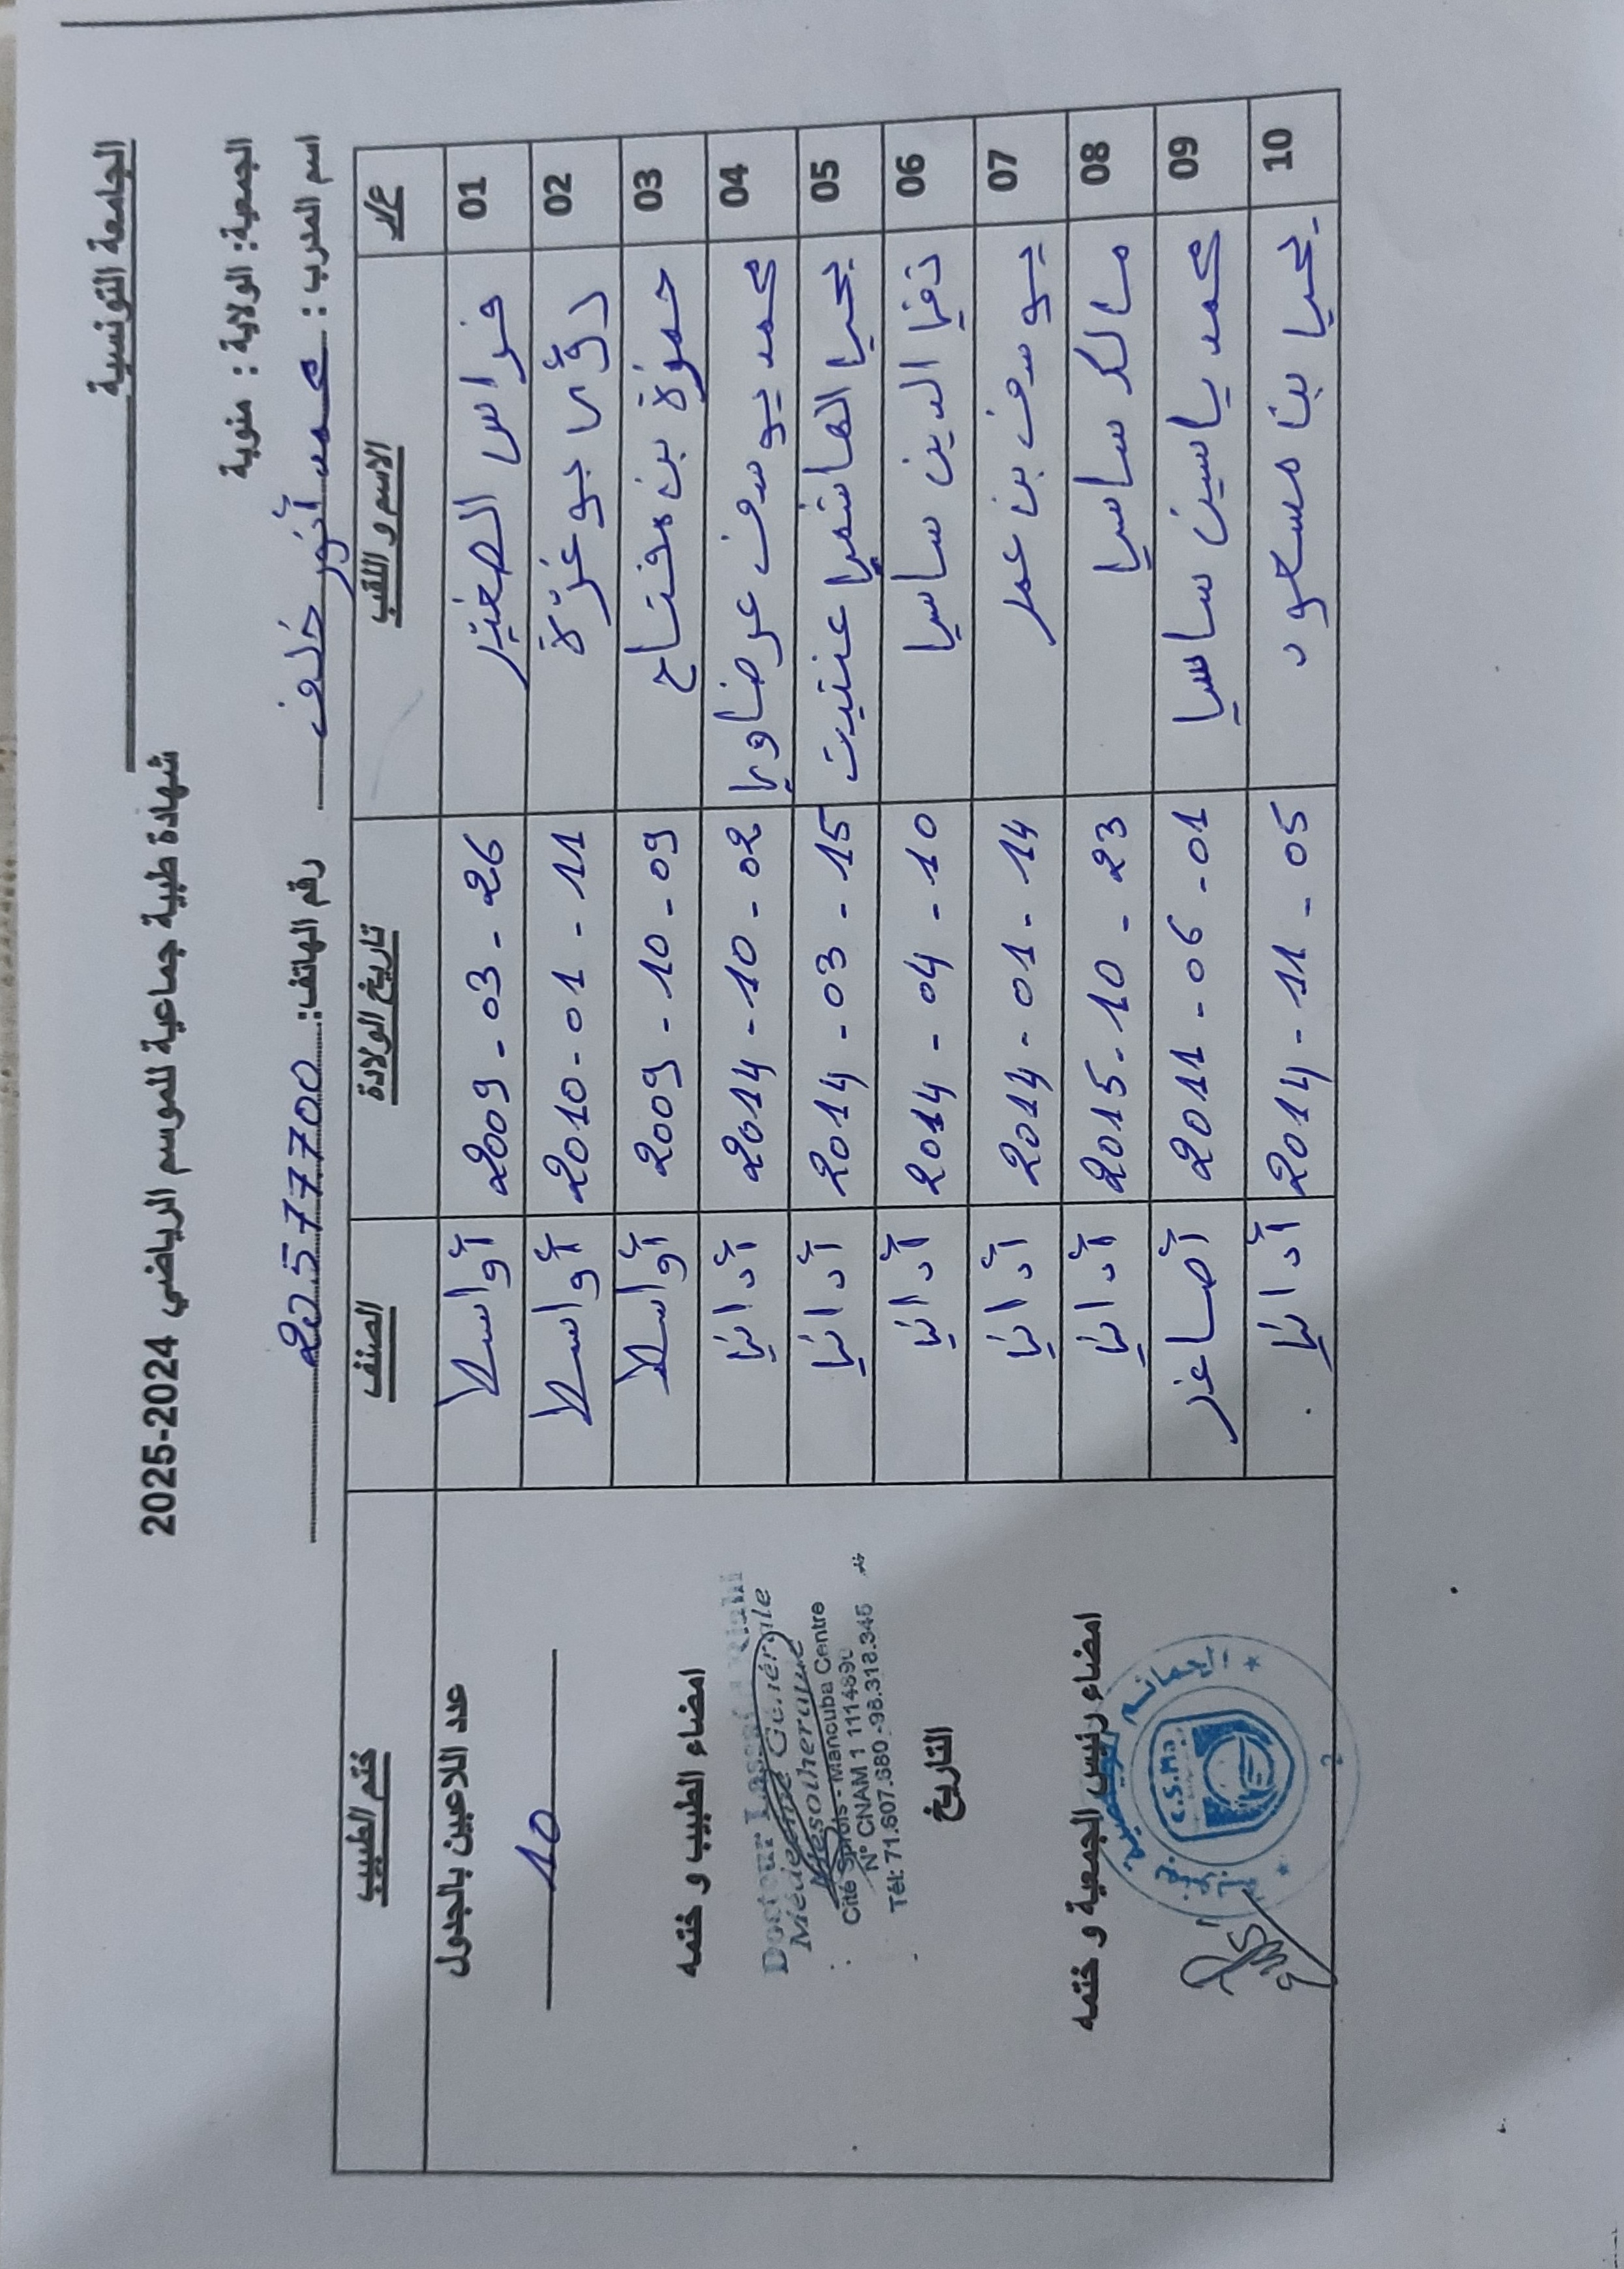 الجامعة التونسية
شهادة طبية جماعية للموسم الرياضي 2024-2025
الجمعية: الولاية : منوبة
اسم المدرب : محمد أنور خلف رقم الهاتف: 20577700
ع/ر الاسم و اللقب تاريخ الولادة الصنف ختم الطبيب
01 فراس الصغير 2009 - 03 - 26 أواسط
02 لؤي بوغزة 2010 - 01 - 11 أواسط
03 حمزة بن مفتاح 2009 - 10 - 09 أواسط
04 محمد يوسف عرضاوي 2014 - 10 - 02 أداني
05 يحي الهاشمي عنتيت 2014 - 03 - 15 أداني
06 تقي الدين ساسي 2014 - 04 - 10 أداني
07 يوسف بن عمر 2014 - 01 - 14 أداني
08 مالك ساسي 2015 - 10 - 23 أداني
09 محمد ياسين ساسي 2011 - 06 - 01 أصاغر
10 يحي بن مسعود 2014 - 11 - 05 أداني
عدد اللاعبين بالجدول
10
امضاء الطبيب و ختمه
Docteur
Médecine Générale
Mésothérapie
Cité Sprols - Manouba Centre
N° CNAM 1
Tél: 71.607.680 - 98.318.345
التاريخ
امضاء رئيس الجمعية و ختمه
C.S.M.